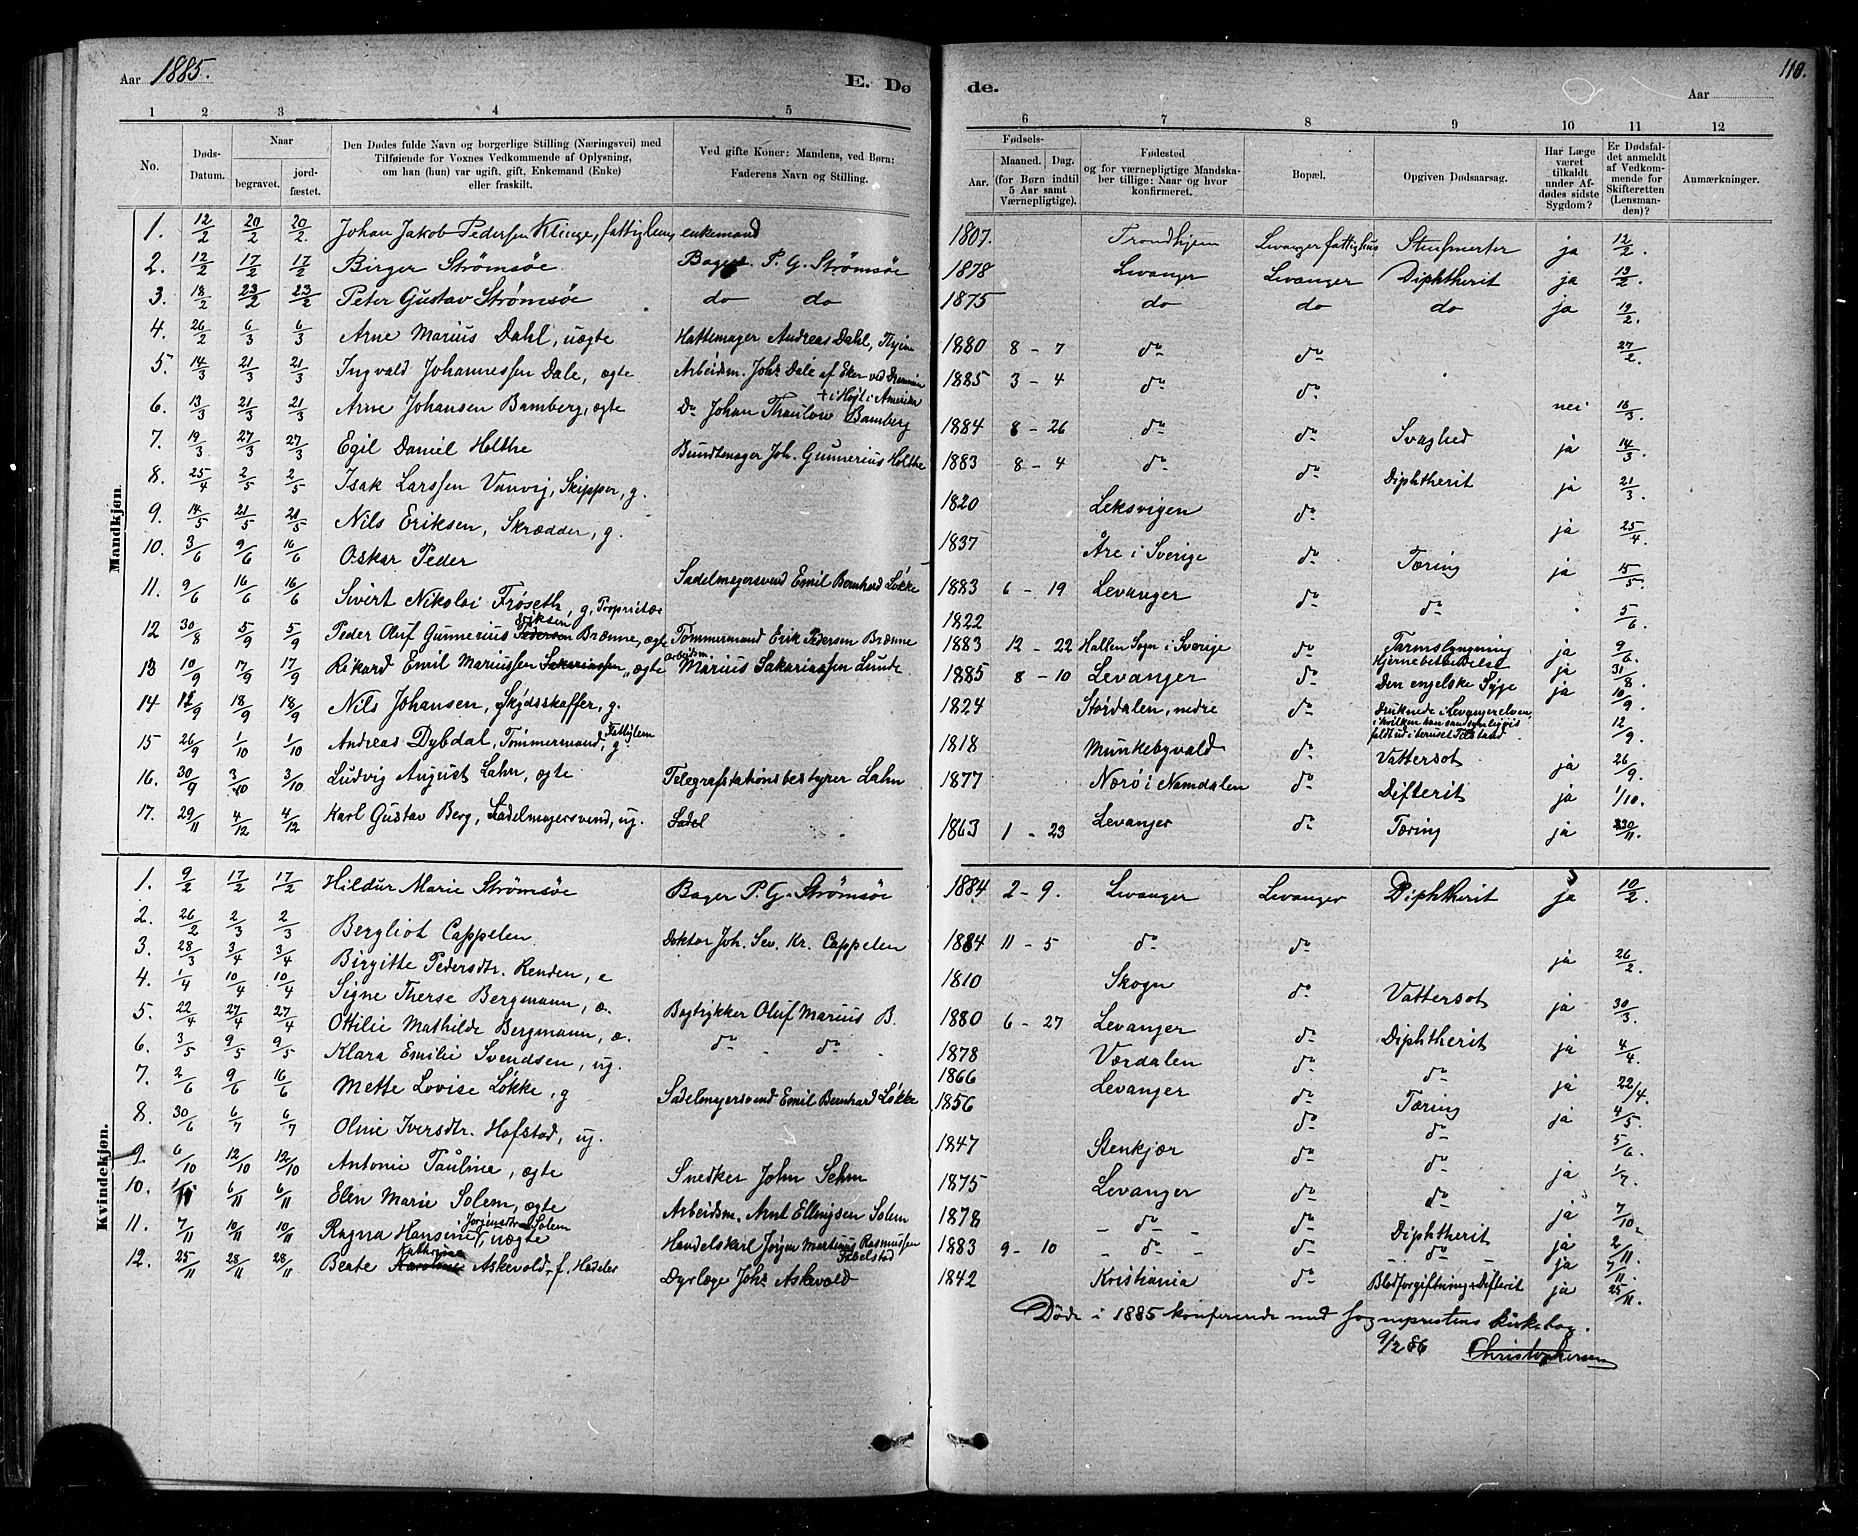 Aar 1885.
E. Dø
de.
110.
Aar
1 2 3 4 5 6 7 8 9 10 11 12
No.
Døds-Datum.
Naar
begravet.
jord-fæstet.
Den Dødes fulde Navn og borgerlige Stilling (Næringsvei) med
Tilføiende for Voxnes Vedkommende af Oplysning,
om han (hun) var ugift, gift, Enkemand (Enke)
eller fraskilt.
Ved gifte Koner: Mandens, ved Børn:
Faderens Navn og Stilling.
Fødsels-
Aar.
Maaned. Dag.
(for Børn indtil
5 Aar samt
Værnepligtige).
Fødested
og for værnepligtige Mandska-
ber tillige: Naar og hvor
konfirmeret.
Bopæl.
Opgiven Dødsaarsag.
Har Læge
været
tilkaldt
under Af-
dødes sidste
Sygdom?
Er Dødsfal-
det anmeldt
af Vedkom-
mende for
Skifteretten
(Lensman-
den)?
Anmærkninger.
Mandkjøn.
1. 12/2 20/2 20/2 Johan Jakob Pedersen Klinge, fattiglem, enkemand 1807. Trondhjem Levanger fattighus ja 12/2
2. 12/2 17/2 17/2 Birger Strømsøe Bager P. G. Strømsøe 1878 Levanger Levanger Diphtherit ja 13/2
3. 18/2 23/2 23/2 Peter Gustav Strømsøe do do 1875 do do do ja 19/2
4. 26/2 6/3 6/3 Arne Marius Dahl, uægte Hattemager Andreas Dahl, Thjem 1880 8 - 7 do do 27/2
5. 14/3 21/3 21/3 Ingvald Johannessen Dale, ægte Arbeidsm. Johs Dale af Eker ved Drammen 1885 3 - 4 do do nei 16/3
6. 13/3 21/3 21/3 Arne Johansen Bamberg, ægte Do Johan Thaulow Bamberg 1884 8 - 26 do do Svaghed ja 14/3
7. 19/3 27/3 27/3 Egil Daniel Holthe Bundtmager Joh. Gunnerius Holthe 1883 8 - 4 do do Diphtherit ja 21/3
8. 25/4 2/5 2/5 Isak Larssen Vanvig, Skipper, g. 1820 Leksvigen do ja 25/4
9. 14/5 21/5 21/5 Nils Eriksen, Skrædder, g. 1837 Åre i Sverige do Tæring ja 15/5
10. 3/6 9/6 16/6 Oskar Peder Sadelmagersvend Emil Bernhard Løkke 1883 6 - 19 Levanger do do 5/6
11. 9/6 16/6 16/6 Sivert Nikolai Frøseth, g, Proprietær 1822 Hallen Sogn i Sverige do Tarmslyngning ja 9/6
12 30/8 5/9 5/9 Peder Oluf Gunnerius Eriksen Brænne, ægte Tømmermand Erik Pedersen Brænne 1883 12 - 22 Levanger do ja 31/8
13 10/9 17/9 17/9 Rikard Emil Mariussen Sakariassen, ægte Arbeidsm. Marius Sakariassen Lunde 1885 8 - 10 do Den engelske Syge ja 10/9
14 12/9 18/9 18/9 Nils Johansen, Skydsskaffer, g. 1824 Størdalen, nedre do Druknede i Levangerelven 12/9
i hvilken han sandsynligvis
faldt ud i beruset Tilstand
15 26/9 1/10 1/10 Andreas Dybdal, Tømmermand, g. Fattiglem 1818 Munkebyvald do Vattersot ja 26/9
16. 30/9 3/10 3/10 Ludvig August Lahn, ægte Telegrafstationsbestyrer Lahn 1877 Nærø i Namdalen do Difterit ja 1/10.
17. 29/11 4/12 4/12 Karl Gustav Berg, Sadelmagersvend, ug. Sadel 1863 1 - 23 Levanger do Tæring ja 30/11
Kvindekjøn.
1. 9/2 17/2 17/2 Hildur Marie Strømsøe Bager P. G. Strømsøe 1884 2 - 9. Levanger Levanger Diphtherit ja 10/2
2. 26/2 2/3 2/3 Bergliot Cappelen Doktor Joh. Sev. Kr. Cappelen 1884 11 - 5 do do ja 26/2
3. 28/3 3/4 3/4 Birgitte Pedersdtr. Renden, e 1810 Skogn do Vattersot ja 30/3
4. 1/4 10/4 10/4 Signe Therse Bergmann, æ. Bogtrykker Oluf Marius B. 1880 6 - 27 Levanger do Diphtherit ja 4/4
5. 22/4 27/4 27/4 Ottilie Mathilde Bergmann, æ. do do 1878 Værdalen do do ja 22/4.
6. 3/5 9/5 9/5 Klara Emilie Svendsen, ug. 1866 Levanger do Tæring ja 4/5
7. 2/6 9/6 16/6 Mette Lovise Løkke, g Sadelmagersvend Emil Bernhard Løkke 1856 do do 5/6
8. 30/6 6/7 6/7 Oline Iversdtr. Hofstad, ug. 1847 Stenkjær do do ja 1/7.
9 6/10 12/10 12/10 Antonie Pauline, ægte Snedker John Sehm 1875 Levanger do do ja 7/10
10. 1/11 6/11 6/11 Elen Marie Solem, ægte Arbeidsm. Arnt Ellingsen Solem 1878 do do Diphtherit ja 2/11
11. 7/11 10/11 10/11 Ragna Hansine Jørgensdtr. Solem, uægte Handelskarl Jørgen Martinus Rasmussen 1883 9 - 10 do do do ja 7/11.
12. 25/11 28/11 28/11 Beate Kathrine Askevold, f. Hedeler Dyrlæge Johs Askevold 1842 Kristiania do Blodforgiftning, Difterit ja 25/11.
Døde i 1885 konfererede med Sognepræstens kirkebog.
9/2 86 Christophersen